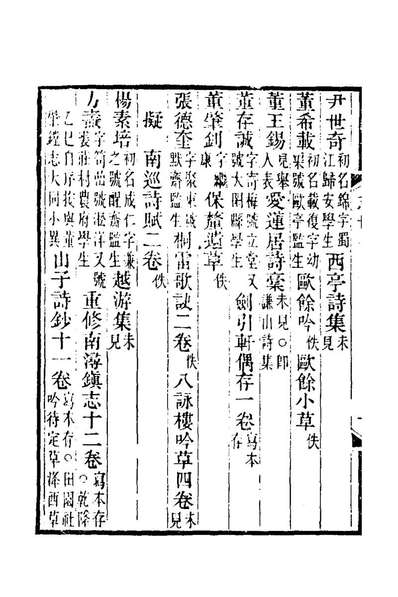 尹世奇初名錦字蜀江歸安學生西亭詩集未見
董希載初名載復字幼栗號歐亭監生歐餘吟佚歐餘小草佚
董王錫見舉人表愛蓮居詩稾未見○卽謙山詩集
董存誠字寄梅號立堂又號大附縣學生劍引軒偶存一卷寫本存
董肇釗字康保釐遺草佚
張德奎字聚東號齋監生桐雷歌訣二卷佚八詠樓吟草四卷未見
擬南巡詩賦二卷佚
楊素培初名成仁字謙之號醒齋監生越游集未見
方燾字號洋又號張莊村農府學生重修南潯鎮志十二卷寫本存○乾隆乙巳自序按與董榮鎮志大同小異山子詩鈔十一卷寫本存○田園社吟待定草滌酉草